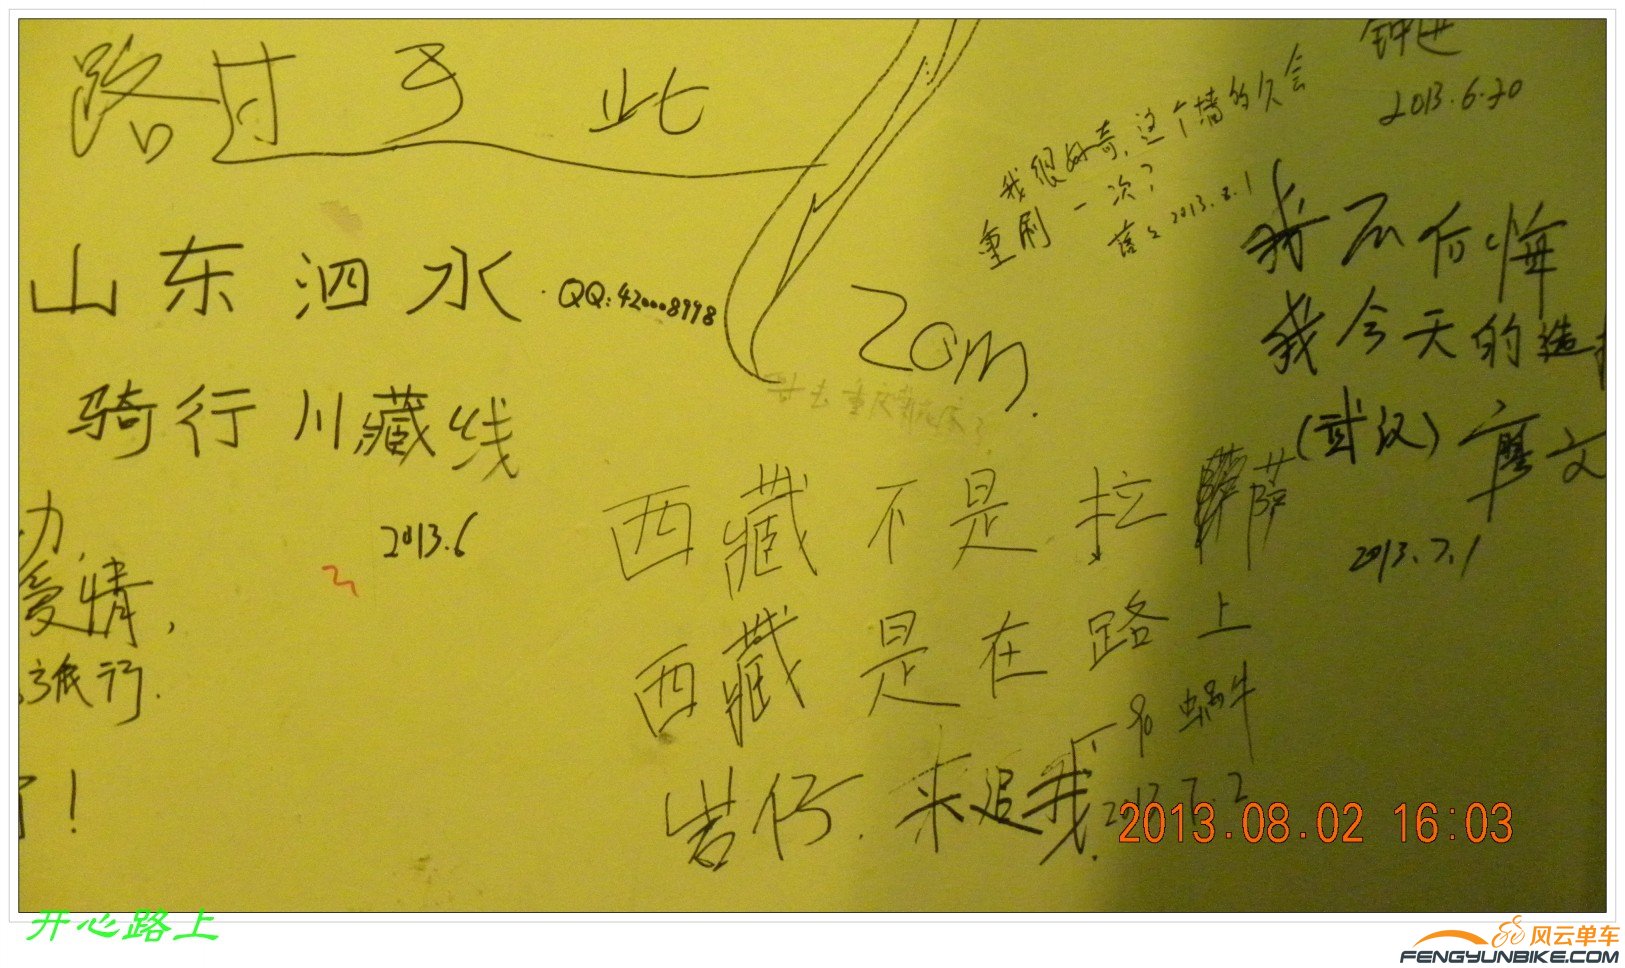 路过于此
山东泗水 QQ:420008998
骑行川藏线
2013.6
力,
爱情,
旅行.
!
2013.6.20
我很好奇,这个墙多久会
重刷一次?
2013.8.1
20m.
我不后悔
我今天的选择
(武汉)
2013.7.1
西藏不是拉萨
西藏是在路上
蜗牛
2013.7.2
岩仔.来追我.
2013.08.02 16:03
开心路上
风云单车
FENGYUNBIKE.COM